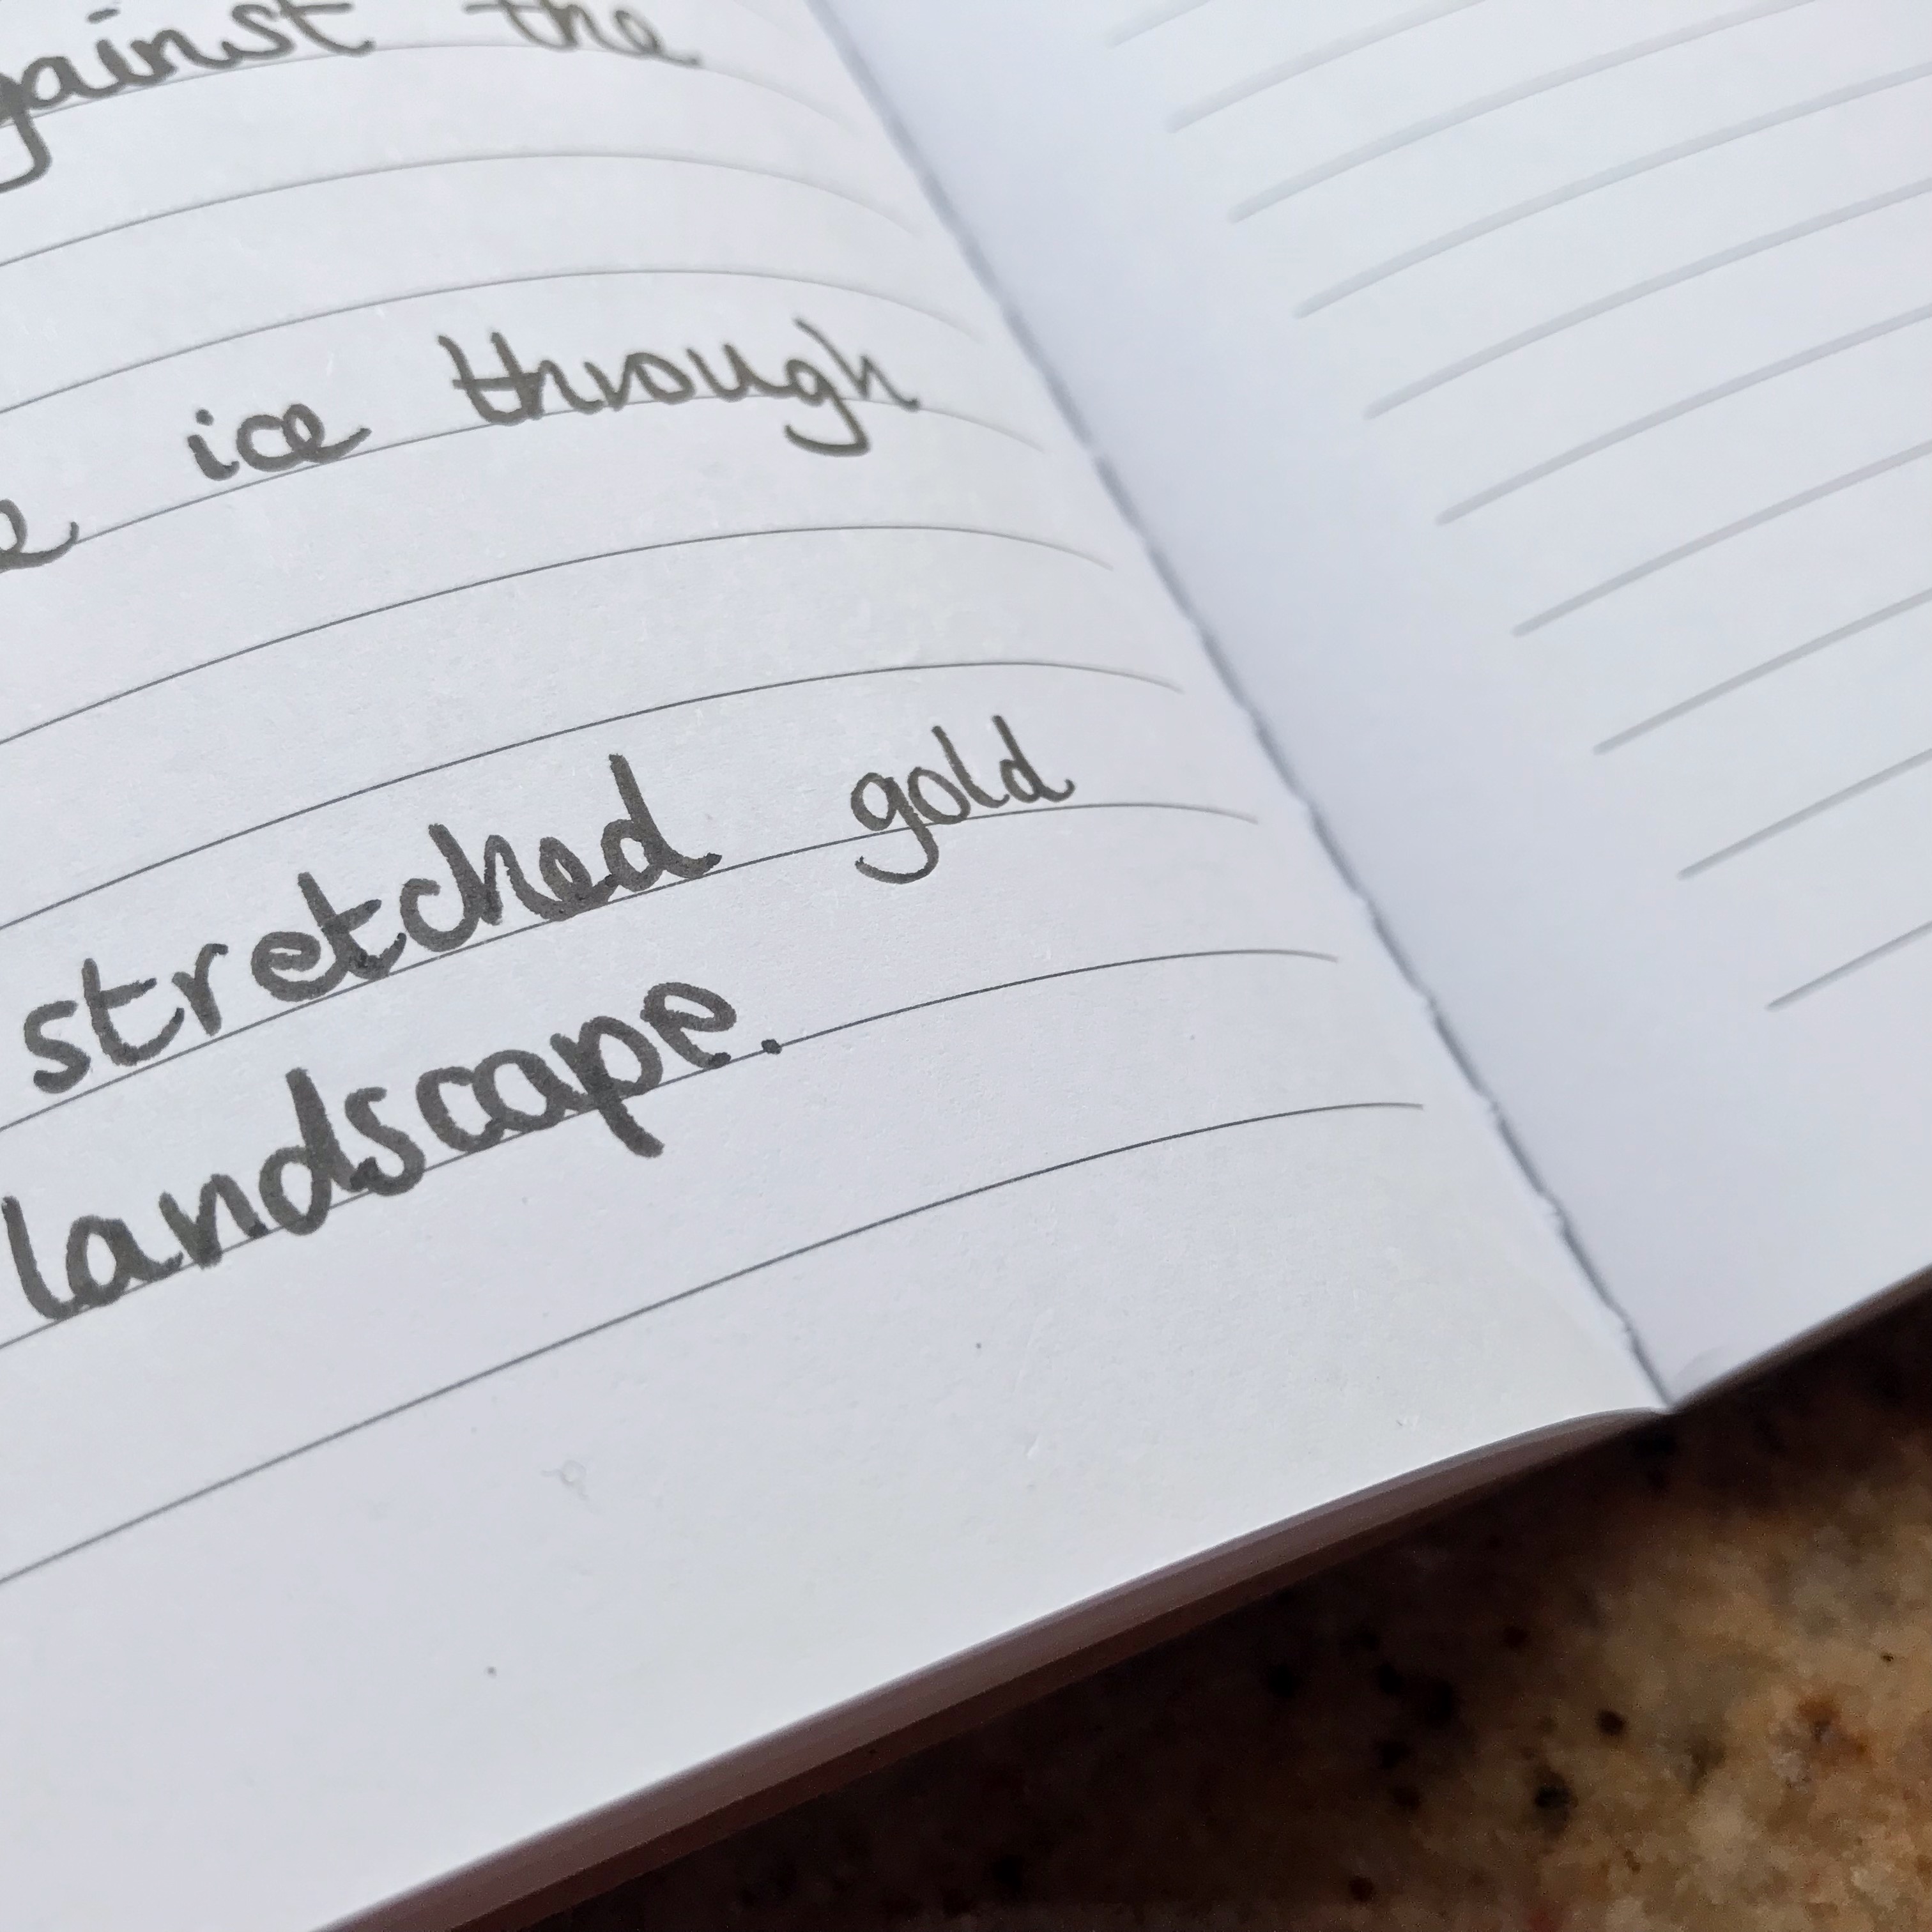 gainst the
e ice through
stretched gold
landscape.